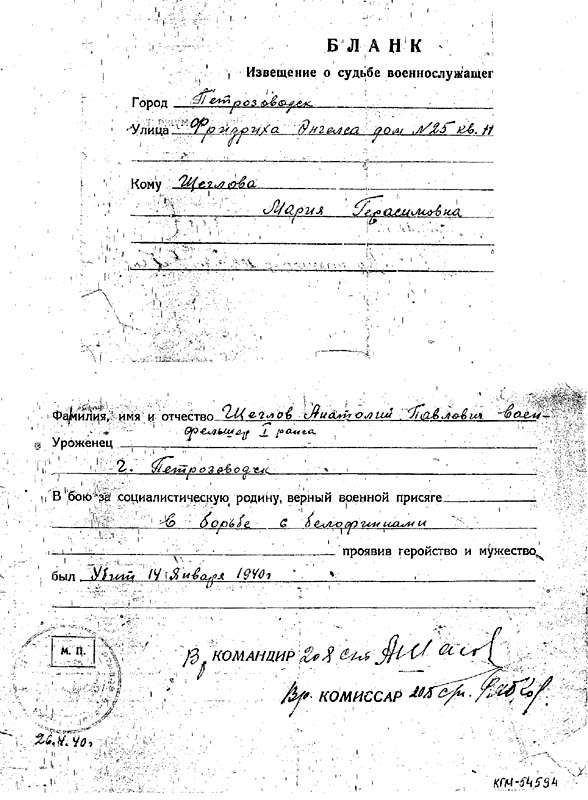 БЛАНК
Извещение о судьбе военнослужащег
Город Петрозоводск
Улица Фридриха Энгелса дом №25 кв. 11
Кому Щеглова
Мария Герасимовна
Фамилия, имя и отчество Щеглов Анатолий Павлович воен-
фельшер I ранга
Уроженец
г. Петрозоводск
В бою за социалистическую родину, верный военной присяге
в борьбе с белофиннами
проявив геройство и мужество,
был Убит 14 Января 1940г
М. П.
Вр КОМАНДИР
Вр. КОМИССАР
26.4.40г
КГМ-54594